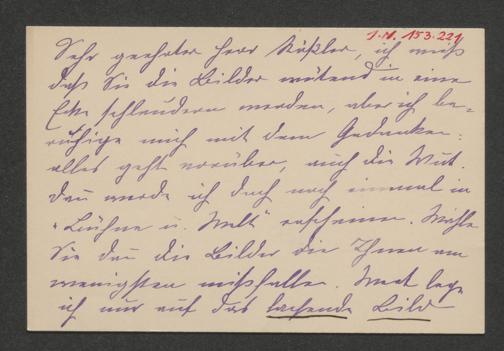 J.N. 153.221
Sehr geehrter Herr Käßler, ich weiß
daß Sie die Bilder wütend in eine
Ecke schleudern werden, aber ich be-
ruhige mich mit dem Gedanken:
alles geht vorüber, auch die Wut.
Dan werde ich doch noch einmal in
"Bühne u. Welt" erscheinen. Wähle
Sie dan die Bilder die Ihnen am
wenigsten mißfallen. Wert lege
ich nur auf das lachende Bild